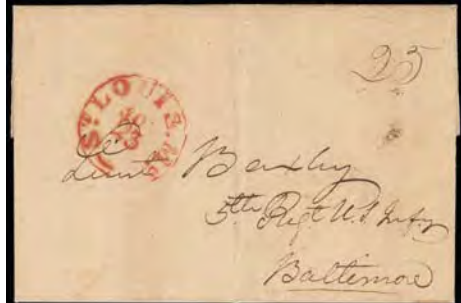 25
ST LOUIS. Mo.
23
Lieut Baxley
5th Regt U.S. Infy
Baltimore